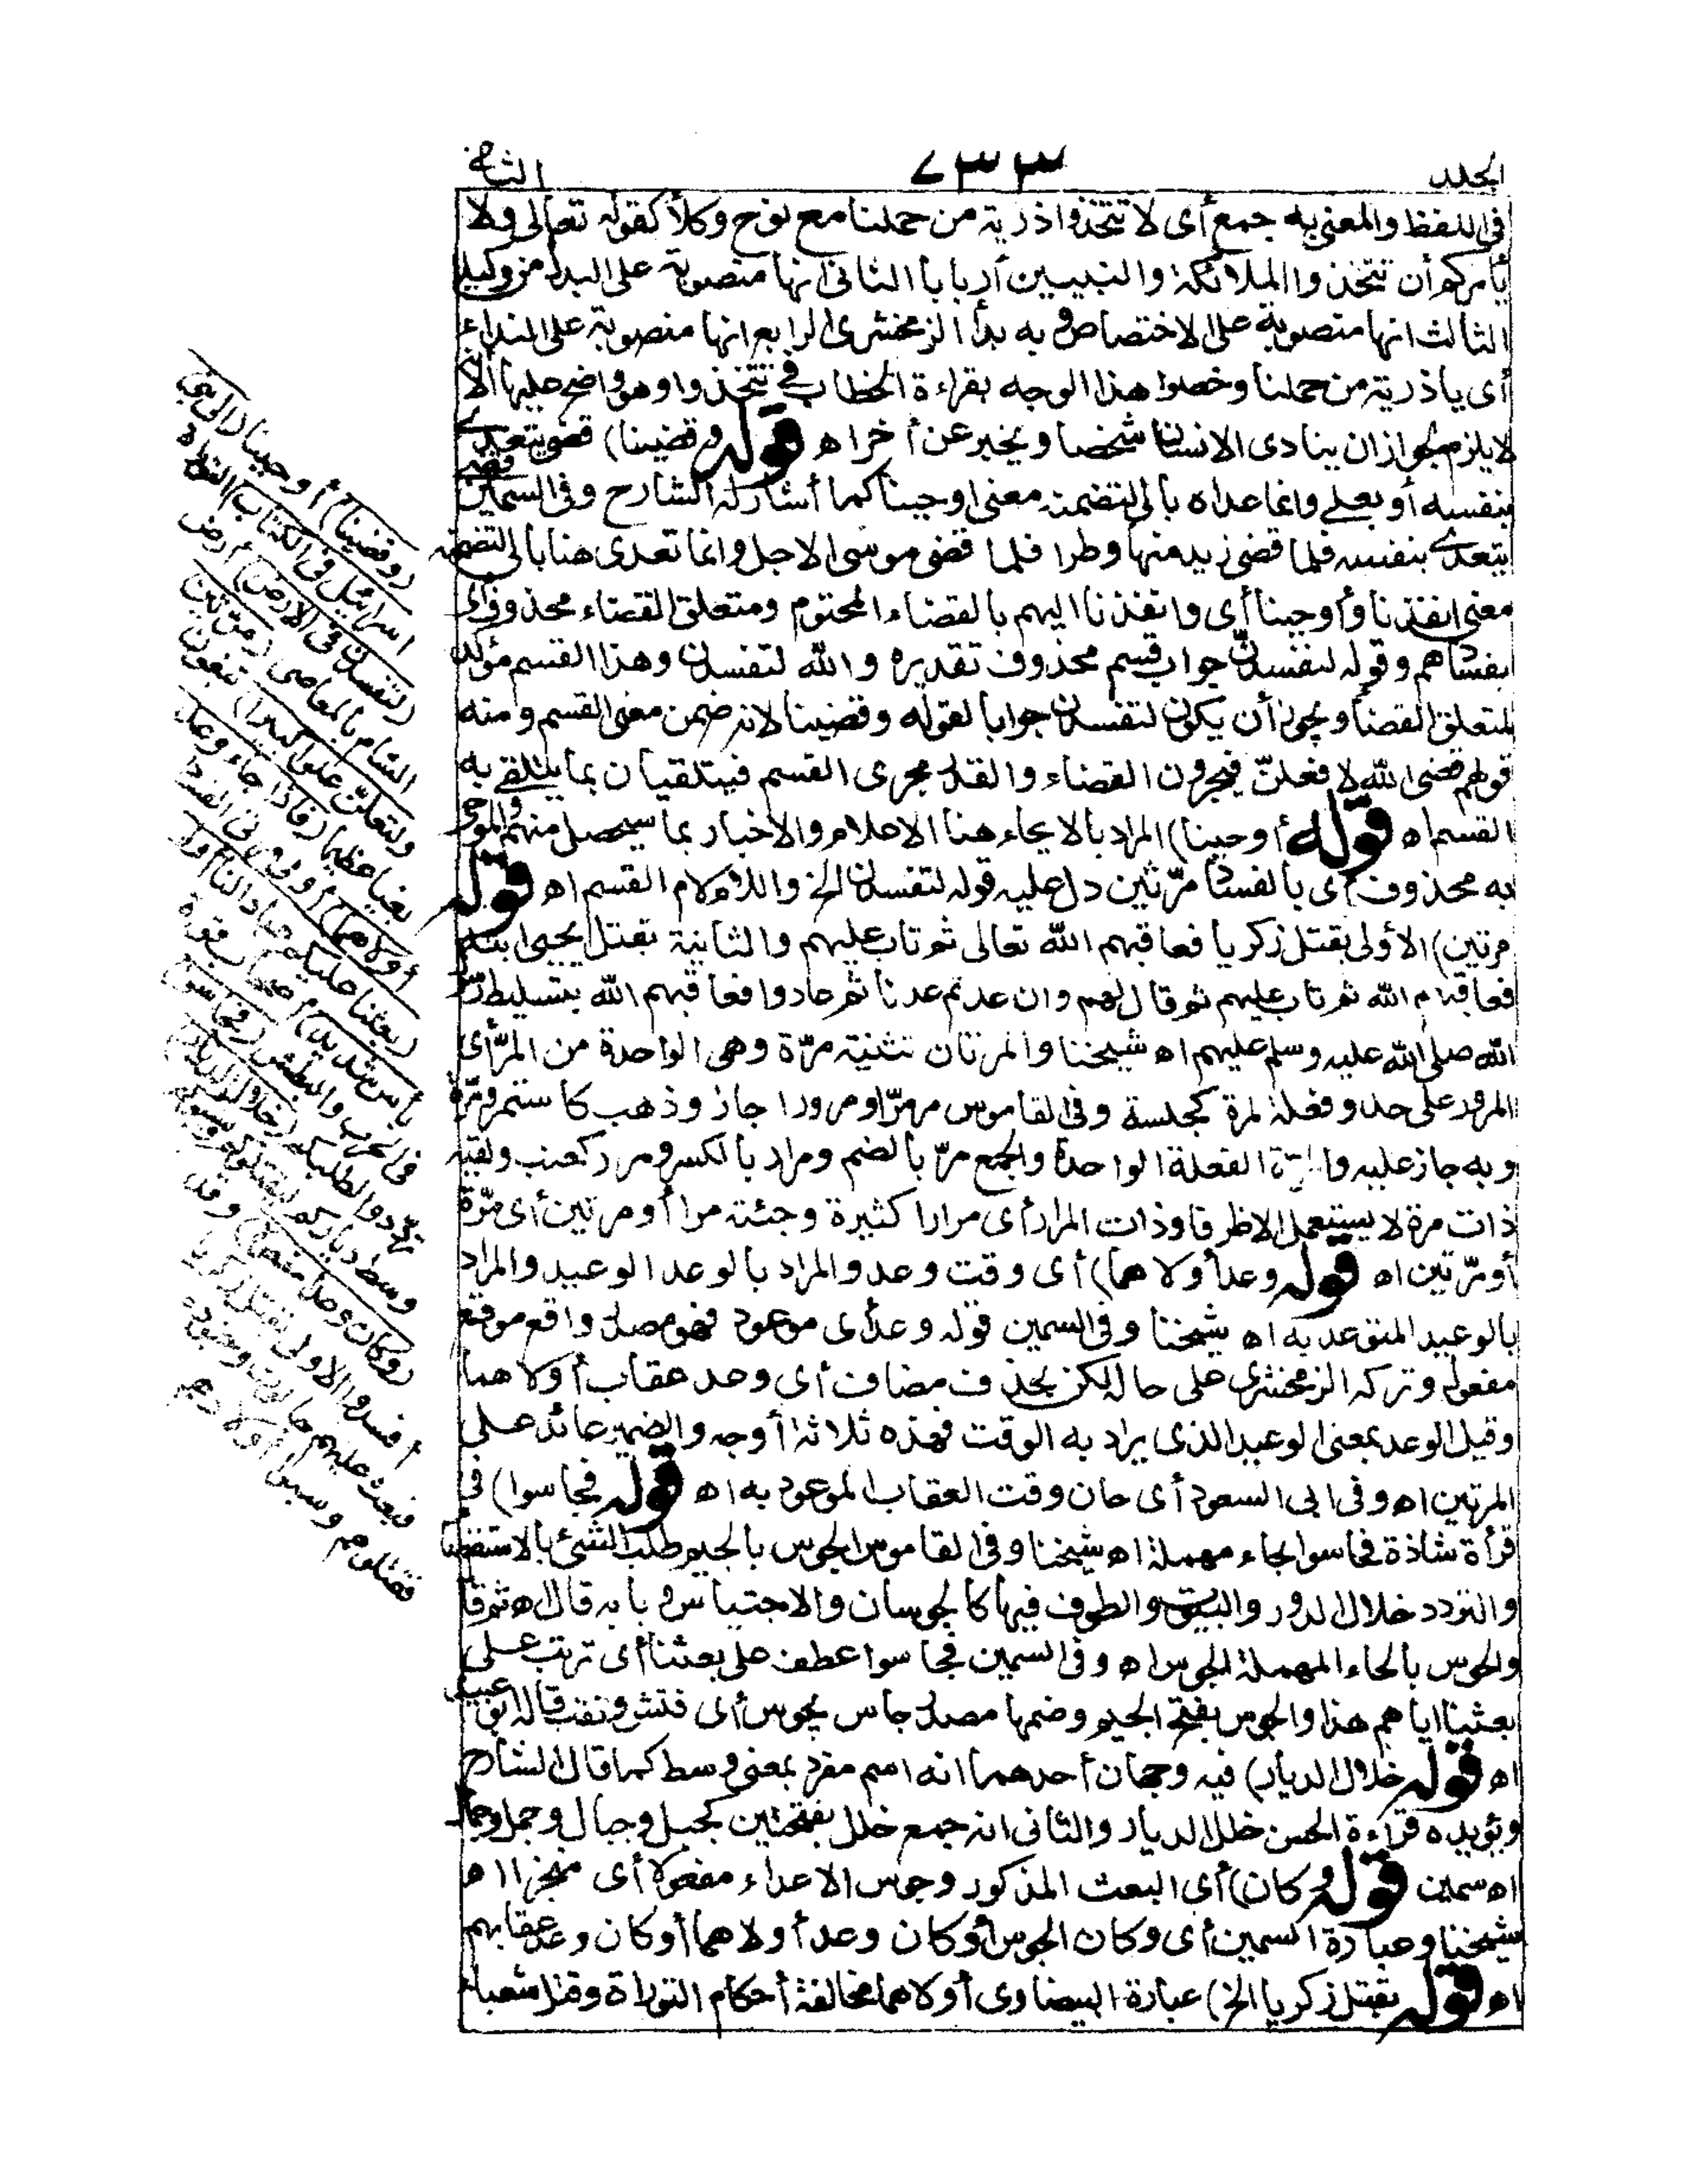 الجلد ٧٣٣ الثانى
فى اللفظ والمعنى به جمع أى لا تتخذوا ذرية من حملنا مع نوح وكلا كقوله تعالى ولا
يأمركم أن تتخذوا الملائكة والنبيين أربابا الثانى انها منصوبة على البدل من وكيلا
الثالث انها منصوبة على الاختصاص وبه بدأ الزمخشرى الرابع انها منصوبة على النداء
أى يا ذرية من حملنا وخصلوا هذا الوجه بقراءة الخطاب فى تتخذوا وهو واضح عليها الا
لا يلزم لجواز ان ينادى الانسان شخصا ويخبر عن أخر اه قوله وقضينا) قضى يتعدى
بنفسه أو بعلى وانما عداه بالى لتضمنه معنى اوحينا كما أشار له الشارح وفى السمين قضى
يتعدى بنفسه فلما قضى زيد منها وطرا فلما قضى موسى الاجل وانما تعدى هنا بالى لتضمنه
معنى انفذنا وأوحينا أى وانفذنا اليهم بالقضاء المحتوم ومتعلق القضاء محذوف أى
بفسادهم وقوله لتفسدنّ جواب قسم محذوف تقديره والله لتفسدن وهذا القسم مؤكد
لمتعلق القضا ويجوز أن يكون لتفسدن جوابا لقوله وقضينا لانه ضمن معنى القسم ومنه
قولهم قضى الله لافعلنّ فيجرون القضاء والقدر مجرى القسم فيتلقيان بما يتلقى به
القسم اه قوله أوحينا) المراد بالايحاء هنا الاعلام والاخبار بما سيحصل منهم والموحى
به محذوف أى بالفساد مرّتين دل عليه قوله لتفسدن الخ واللام لام القسم اه قوله
مرتين) الأولى بقتل زكريا فعاقبهم الله تعالى ثم تاب عليهم والثانية بقتل يحيى ابنه
فعاقبهم الله ثم تاب عليهم ثم قال لهم وان عدتم عدنا ثم عادوا فعاقبهم الله بتسليط رسول
الله صلى الله عليه وسلم عليهم اه شيخنا والمرتان تثنية مرّة وهى الواحدة من المرّ أى
المرور على حد وفعلة لمرة كجلسة وفى القاموس مر مرّا ومرورا جاز وذهب كاستمر ومرّه
وبه جاز عليه والمرّة الفعلة الواحدة والجمع مرّ بالضم ومرار بالكسر ومرر كعنب ولقيه
ذات مرة لا يستعمل الا ظرفا وذات المرار أى مرارا كثيرة وجئته مرا أو مرتين أى مرّة
أو مرّتين اه قوله وعد أولاهما) أى وقت وعد والمراد بالوعد الوعيد والمراد
بالوعيد المتوعد به اه شيخنا وفى السمين قوله وعد أى موعود فهو مصدر واقع موقع
مفعول وتركه الزمخشرى على حاله لكن بحذف مضاف أى وعد عقاب أولاهما
وقيل الوعد بمعنى الوعيد الذى يراد به الوقت فهذه ثلاثة أوجه والضمير عائد على
المرتين اه وفى ابى السعود أى حان وقت العقاب الموعود به اه قوله فجاسوا) فى
قرأة شاذة فحاسوا بحاء مهملة اه شيخنا وفى القاموس الجوس بالجيم طلب الشئ بالاستقصا
والتردد خلال الدور والبيوت والطوف فيها كالجوسان والاجتياس وبابه قال اه ثم قال
والحوس بالحاء المهملة الجوس اه وفى السمين فجاسوا عطف على بعثنا أى ترتب على
بعثنا اياهم هذا والجوس بفتح الجيم وضمها مصدر جاس يجوس أى فتش ونقب قاله ابو عبيد
اه قوله خلال الديار) فيه وجهان أحدهما انه اسم مفرد بمعنى وسط كما قال الشارح
ويؤيده قراءة الحسن خلل الديار والثانى انه جمع خلل بفتحتين كجبل وجبال وجمل وجمال
اه سمين قوله وكان) أى البعث المذكور وجوس الاعداء مفعولا أى منجزا اه
شيخنا وعبارة السمين أى وكان الجوس أو كان وعد أولاهما أو كان وعد عقابهم
اه قوله بقتل زكريا الخ) عبارة البيضاوى أولاهما مخالفة أحكام التوراة وقتل شعياء
(وقضينا) أوحينا (الى بنى
اسرائيل فى الكتاب) التوراة
(لتفسدن فى الارض) أرض
الشام بالمعاصى (مرتين
ولتعلن علوا كبيرا) تبغون
بغيا عظيما (فاذا جاء وعد
أولاهما) أولى مرتى الفساد
(بعثنا عليكم عبادا لنا أولى
بأس شديد) أصحاب قوة
فى الحرب والبطش (فجاسوا)
تردّدوا لطلبكم (خلال الديار)
وسط دياركم ليقتلوكم ويسبوكم
(وكان وعدا مفعولا) وقد
أفسدوا الاولى بقتل زكريا
فبعث عليهم جالوت وجنوده
فقتلوهم وسبوا أولادهم